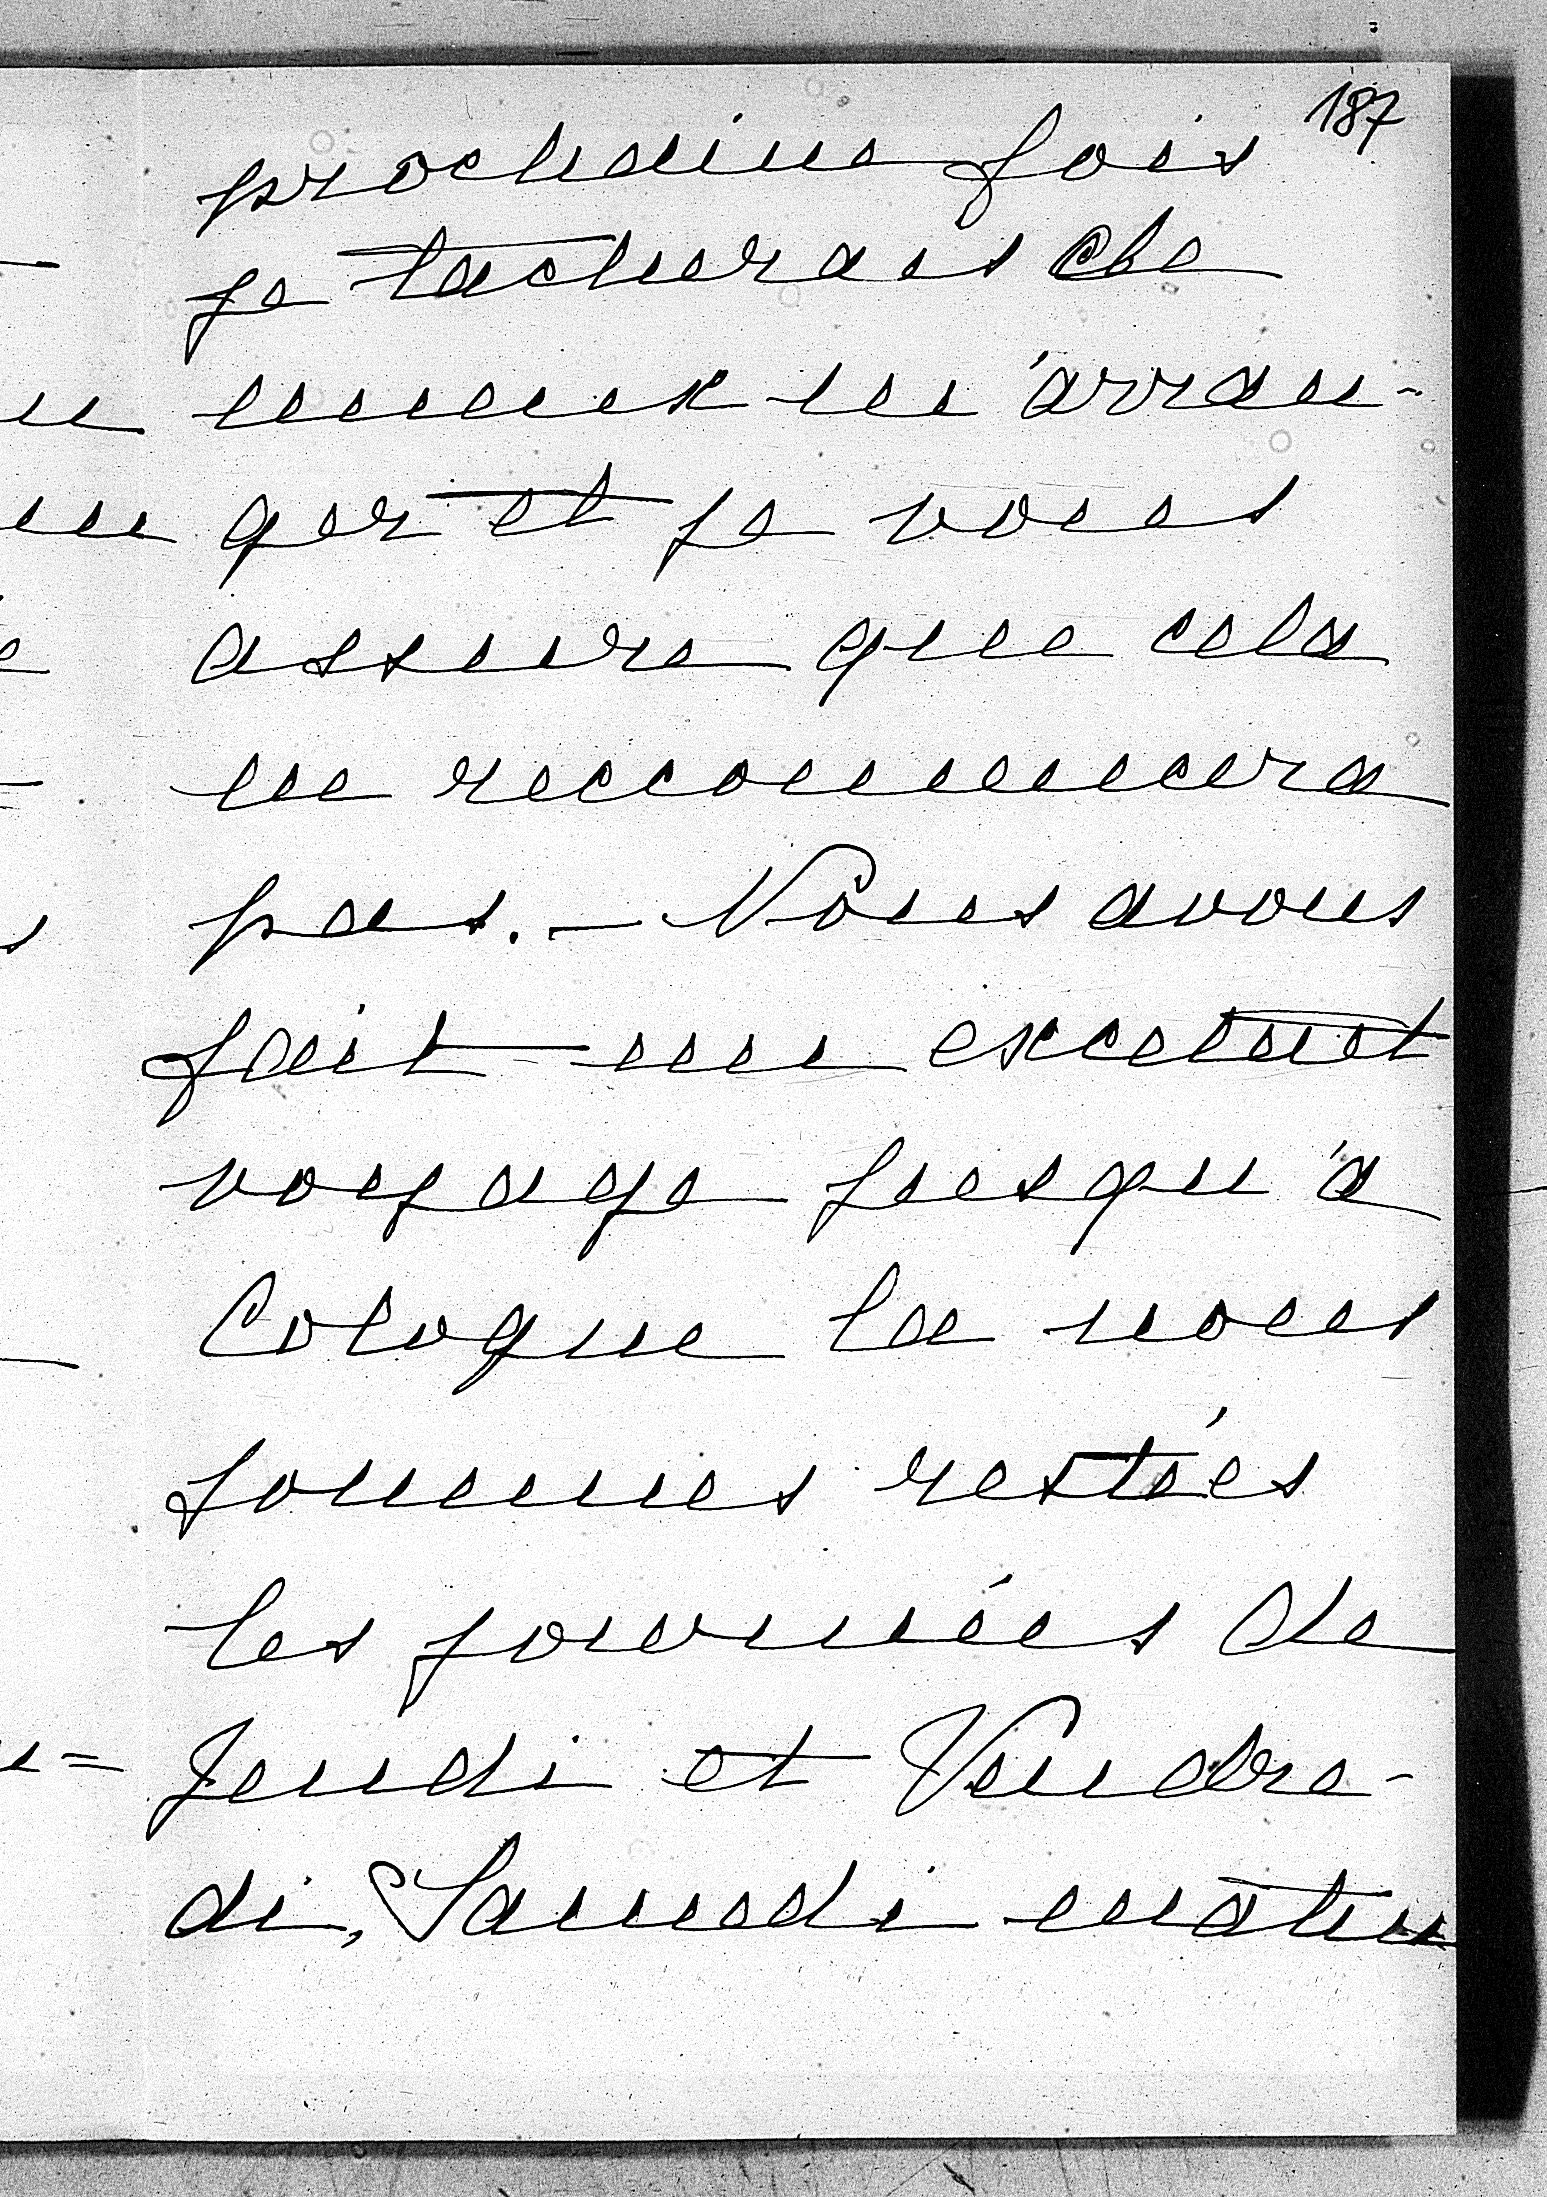 187
prochaine fois
je tacherais de
mieux m'arran-
ger et je vous
assure que cela
ne reccommencera
pas. — Nous avons
fait un excelent
voyage jusqu'à
Cologne la nous
sommes restées
les journées de
Jeudi et Vendre-
di, Samedi matin